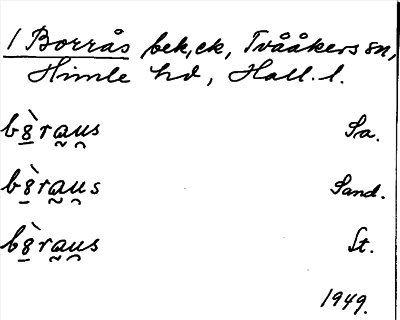 1 Borrås bek, ek, Tvååkers sn,
Himle hd, Hall. l.
b8̀raus Sa.
b8̀raus Sand.
b8̀raus St.
1949.